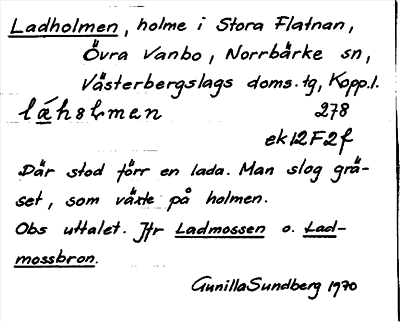 Ladholmen, holme i Stora Flatnan,
Övra Vanbo, Norrbärke sn,
Västerbergslags doms. tg, Kopp. l.
278
ek 12F2f
Där stod förr en lada. Man slog grä-
set, som växte på holmen.
Obs uttalet. Jfr Ladmossen o. Lad-
mossbron.
Gunilla Sundberg 1970